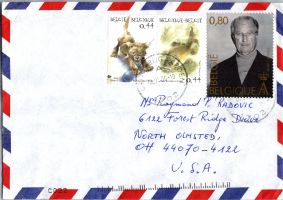 BELGIË BELGIQUE
0,44
BELGIQUE BELGIË
0,44
0,80
BELGIË
BELGIQUE
A
Raymond P. RADOVIC
6122 Forest Ridge Drive
NORTH OLMSTED,
OH 44070-4122
U.S.A.